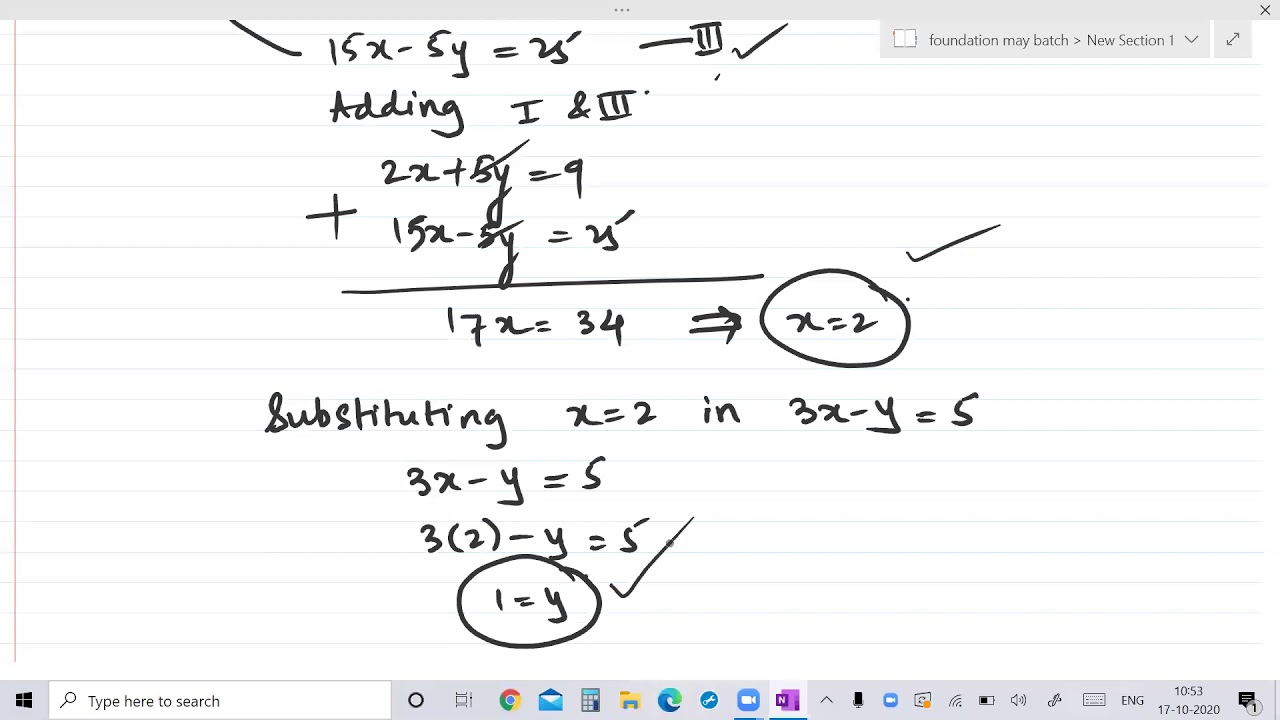 15x - 5y = 25 — III
foundation may batch > New Section 1
Adding I & III
2x + 5y = 9
+ 15x - 5y = 25
17x = 34 ⇒ x = 2
Substituting x = 2 in 3x - y = 5
3x - y = 5
3(2) - y = 5
1 = y
Type here to search
ENG
10:53
17-10-2020
1